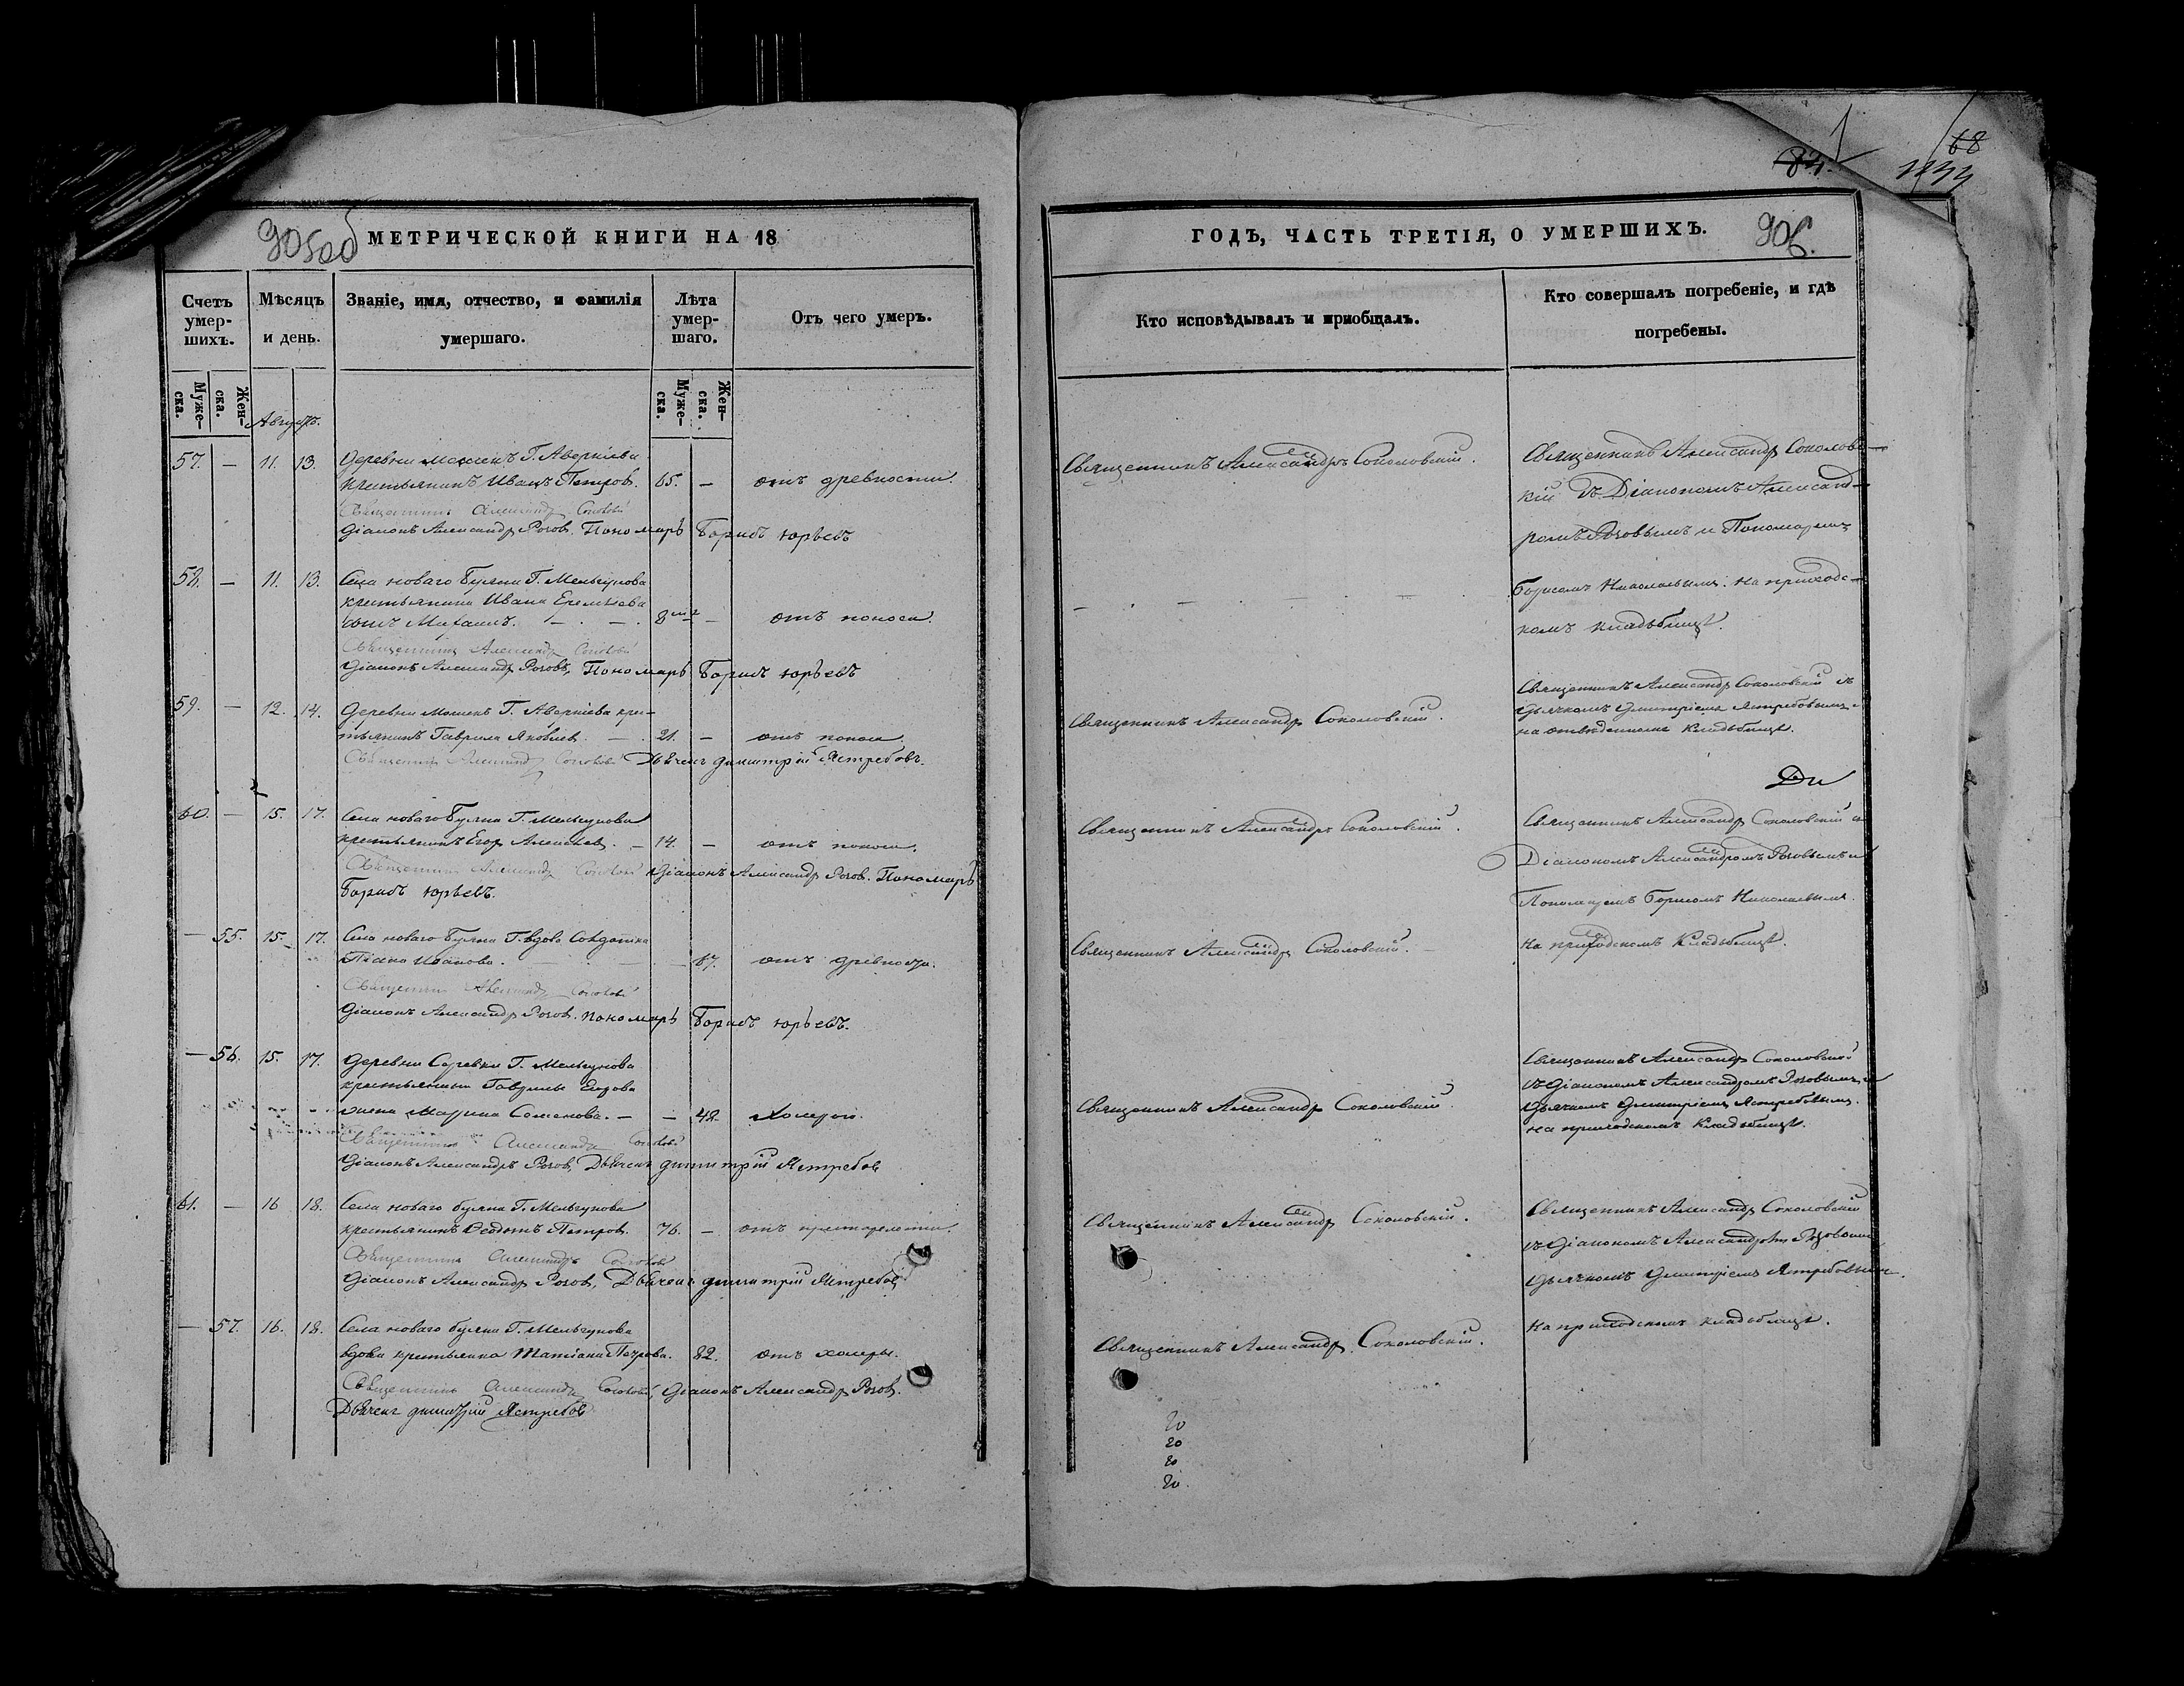 905об МЕТРИЧЕСКОЙ КНИГИ НА 18
Счетъ умер-шихъ. Мѣсяцъ и день. Званіе, имя, отчество, и фамилія умершаго. Лѣта умер-шаго. Отъ чего умеръ.
Муже-ска. Жен-ска. Муже-ска. Жен-ска.
Августъ.
57. — 11. 13. Деревни Г. Аверкіева
крестьянинъ Иванъ Петровъ. 65. — отъ древности.
Священникъ Александръ Соколовскій
Діаконъ Александръ Розов. Пономарь Борисъ Юрьевъ
58. — 11. 13. Села новаго Буяна Г. Мельгунова
крестьянина Ивана Еремѣева
сынъ Михаилъ. — 8 — отъ поноса.
Священникъ Александръ Соколовскій
Діаконъ Александръ Розовъ, Пономарь Борисъ Юрьевъ
59. — 12. 14. Деревни Г. Аверкіева крес-
тьянинъ Гаврила Яковлев. — 21. — отъ поноса.
Священникъ Александръ Соколовскій Дьячекъ Димитрій Ястребовъ.
60. — 15. 17. Села новаго Буяна Г. Мельгунова
крестьянинъ Егоръ Алексѣев. — 14. — отъ поноса.
Священникъ Александръ Соколовскій Діаконъ Александръ Розов. Пономарь
Борисъ Юрьевъ.
— 55. 15. 17. Села новаго Буяна Г. вдова Солдатка
Иванова. — 67. отъ древности.
Священникъ Александръ Соколовскій
Діаконъ Александръ Розов. пономарь Борисъ Юрьевъ.
— 56. 15. 17. Деревни Г. Мельгунова
крестьянина Гаврилы Егорова
жена Марина Семенова. — — 48. Холерой.
Священникъ Александръ Соколовскій
Діаконъ Александръ Розов, Дьячекъ Димитрій Ястребов
61. — 16 18. Села новаго буяна Г. Мельгунова
крестьянинъ Ѳеодотъ Петров. 76. — отъ престарелости.
Священникъ Александръ Соколовскій
Діаконъ Александръ Розов, Дьячекъ Димитрій Ястребов
— 57. 16. 18. Села новаго буяна Г. Мельгунова
вдова крестьянка Татіана Петрова. 82. отъ холеры.
Священникъ Александръ Соколовскій, Діаконъ Александръ Розов.
Дьячекъ Димитрій Ястребов
68
ГОДЪ, ЧАСТЬ ТРЕТІЯ, О УМЕРШИХЪ. 906.
Кто исповѣдывалъ и пріобщалъ. Кто совершалъ погребеніе, и гдѣ погребены.
Священникъ Александръ Соколовскій. Священникъ Александръ Соколовс-
кій съ Діакономъ Александ-
ромъ Розовымъ и Пономаремъ
Борисомъ Николаевымъ. на приходс-
комъ кладбищѣ.
Священникъ Александръ Соколовскій. Священникъ Александръ Соколовскій съ
Дьячкомъ Димитріемъ Ястребовымъ
на отведенномъ Кладбищѣ.
Ди
Священникъ Александръ Соколовскій. Священникъ Александръ Соколовскій съ
Діакономъ Александромъ Розовымъ и
Пономаремъ Борисомъ Николаевымъ.
Священникъ Александръ Соколовскій. на приходскомъ Кладбищѣ.
Священникъ Александръ Соколовскій
съ Діакономъ Александромъ Розовымъ и
Священникъ Александръ Соколовскій. Дьячкомъ Димитріемъ Ястребовымъ.
на приходскомъ Кладбищѣ.
Священникъ Александръ Соколовскій. Священникъ Александръ Соколовскій
съ Діакономъ Александромъ Розовымъ
Дьячкомъ Димитріемъ Ястребовымъ.
Священникъ Александръ Соколовскій. на приходскомъ кладбищѣ.
20
20
20
20